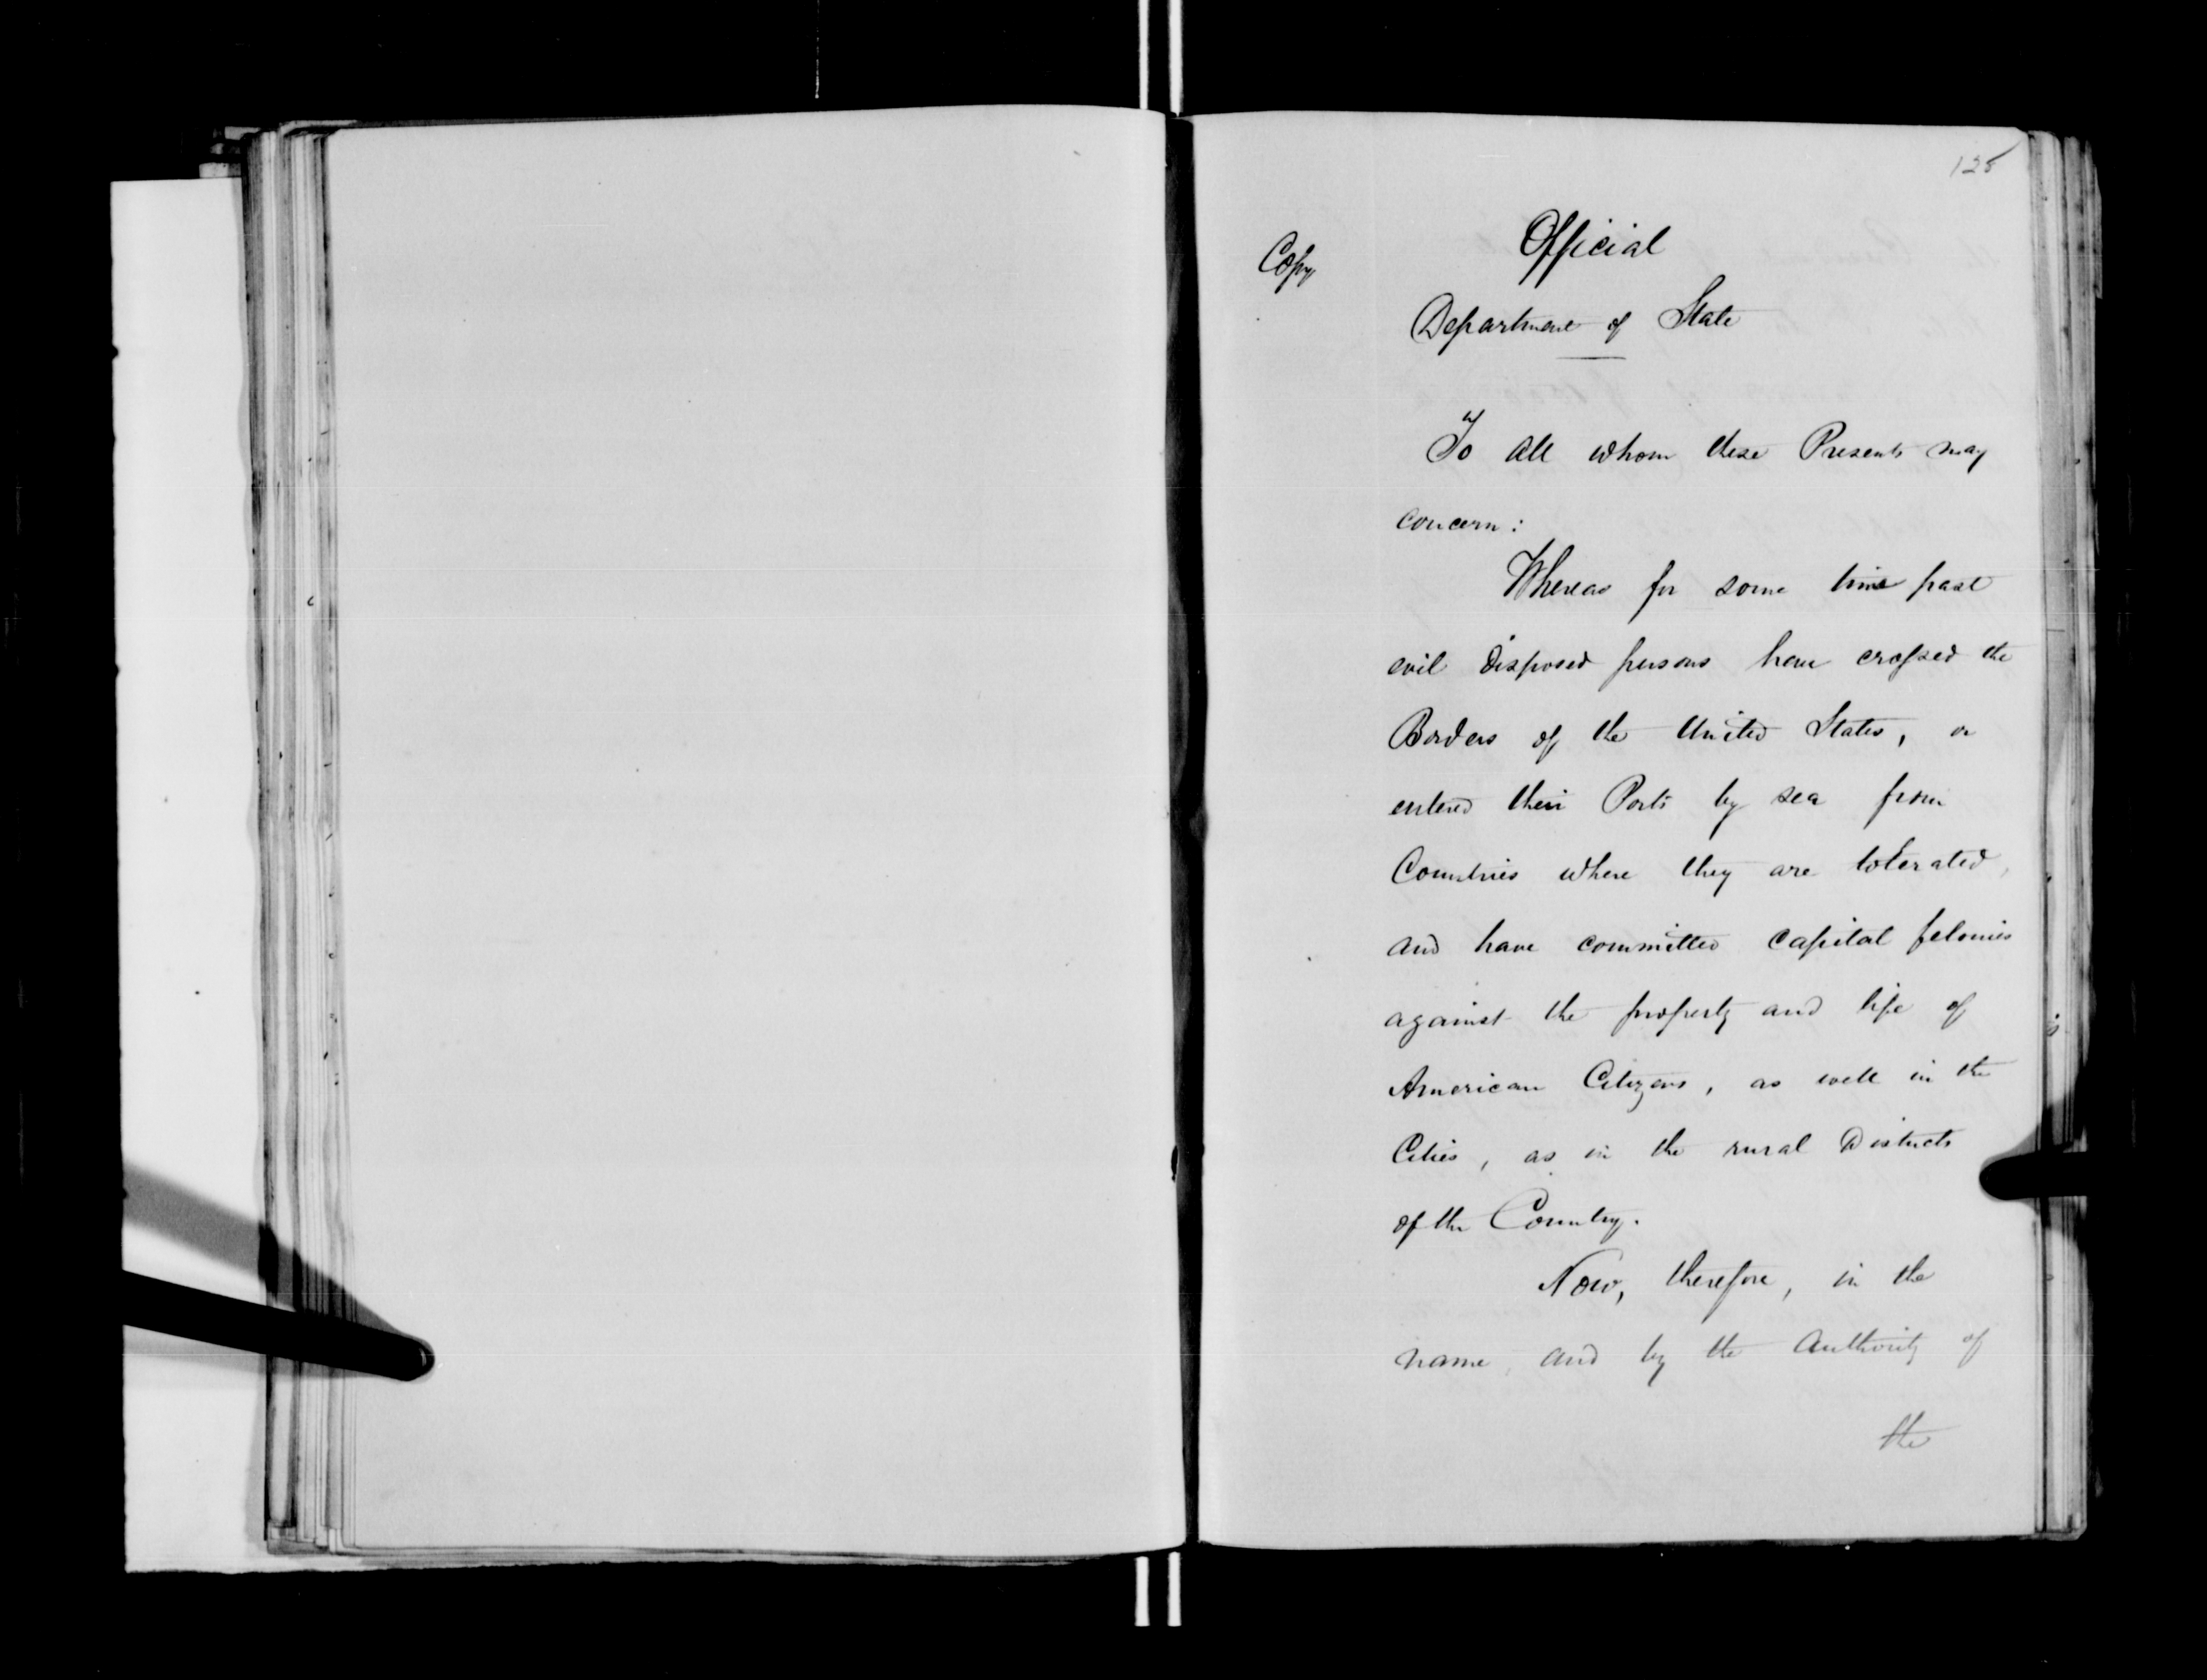 128
Official
Copy
Department of State
To all whom these Presents may
concern:
Whereas for some time past
evil disposed persons have crossed the
Borders of the United States, or
entered their Ports by sea from
Countries where they are tolerated,
and have committed capital felonies
against the property and life of
American Citizens, as well in the
Cities, as in the rural Districts
of the Country.
Now, therefore, in the
name, and by the authority of
the